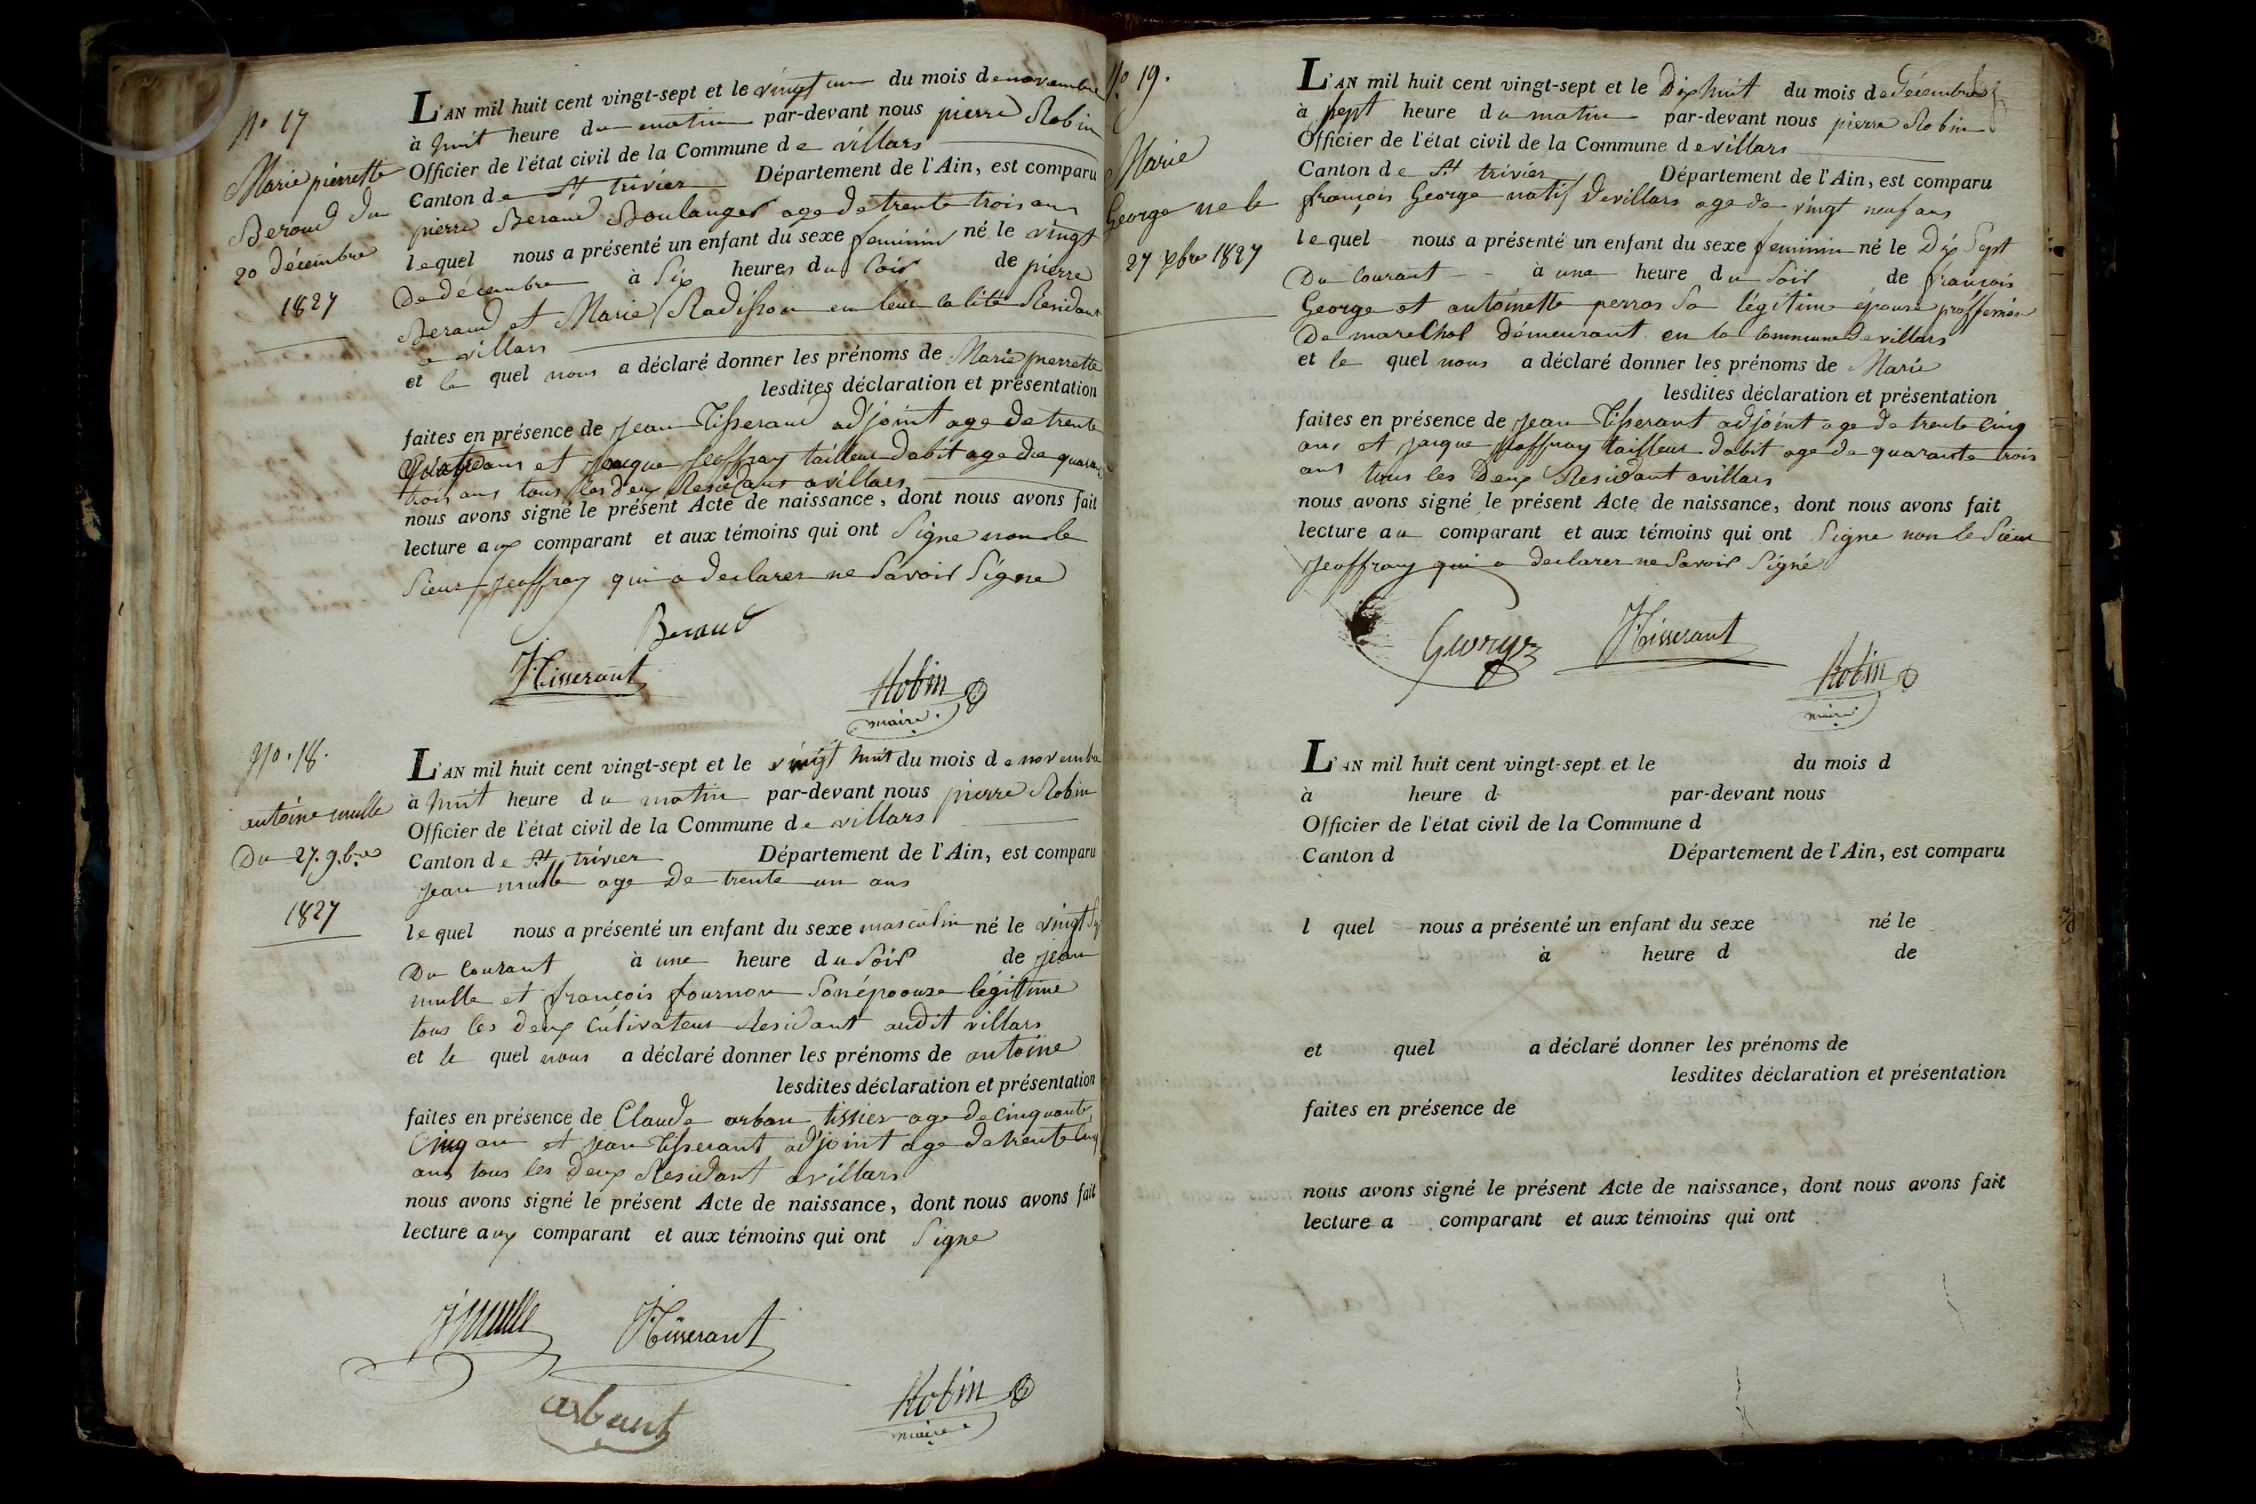 N° 17
Marie pierrette
Beroud du
20 décembre
1827
L'AN mil huit cent vingt-sept et le vingt un du mois de novembre
à huit heure du matin par-devant nous pierre Robin
Officier de l'état civil de la Commune de villars
Canton de St trivier Département de l'Ain, est comparu
pierre Beraud Boulanger age de trente trois ans
lequel nous a présenté un enfant du sexe feminin né le vingt
De décembre à Six heures du Soir de pierre
Beraud et Marie Radisson en leur calité Residant
a villars
et le quel nous a déclaré donner les prénoms de Marie pierrette
lesdites déclaration et présentation
faites en présence de Jean Tisserand adjoint age de trente
ans et Jacque Jeoffray tailleur dabit age de quarante
trois ans tous les deux Residans a villars
nous avons signé le présent Acte de naissance, dont nous avons fait
lecture aux comparant et aux témoins qui ont Signe non le
Sieur Jeoffray qui a declarer ne Savoir Signe
Beraud
JTisserant
Robin
maire
N°. 18.
antoine mulle
Du 27. 9.bre
1827
L'AN mil huit cent vingt-sept et le vingt huit du mois de novembre
à huit heure du matin par-devant nous pierre Robin
Officier de l'état civil de la Commune de villars
Canton de St trivier Département de l'Ain, est comparu
Jean mulle age de trente un ans
lequel nous a présenté un enfant du sexe masculin né le vingt Sep
Du Courant à une heure du Soir de Jean
mulle et françois fournon Son épouse légittime
tous les deux Cultivateur Residant audit villars
et le quel nous a déclaré donner les prénoms de antoine
lesdites déclaration et présentation
faites en présence de Claude arban tissier age de cinquante
Cinq an et Jean Tisserant adjoint age de trente Cinq
ans tous les deux Residant a villars
nous avons signé le présent Acte de naissance, dont nous avons fait
lecture aux comparant et aux témoins qui ont Signe
J mulle JTisserant
arbant
Robin
maire
N° 19.
Marie
George ne le
27 xbre 1827
L'AN mil huit cent vingt-sept et le Dix huit du mois de décembre
à Sept heure du matin par-devant nous pierre Robin
Officier de l'état civil de la Commune de villars
Canton de St trivier Département de l'Ain, est comparu
françois George natif de villars age de vingt neuf ans
lequel nous a présenté un enfant du sexe feminin né le Dix Sept
Du Courant à une heure du Soir de françois
George et antoinette perras Sa légitime épouse proffession
De marechal démeurant en la Commune de villars
et le quel nous a déclaré donner les prénoms de Marie
lesdites déclaration et présentation
faites en présence de Jean Tisserant adjoint age de trente Cinq
ans et Jacque Jeoffray tailleur dabit age de quarante trois
ans tous les Deux Residant a villars
nous avons signé le présent Acte de naissance, dont nous avons fait
lecture au comparant et aux témoins qui ont Signe non le Sieur
Jeoffray qui a declarer ne Savoir Signé
George JTisserant
Robin
maire
L'AN mil huit cent vingt-sept et le du mois d
à heure d par-devant nous
Officier de l'état civil de la Commune d
Canton d Département de l'Ain, est comparu
l quel nous a présenté un enfant du sexe né le
à heure d de
et quel a déclaré donner les prénoms de
lesdites déclaration et présentation
faites en présence de
nous avons signé le présent Acte de naissance, dont nous avons fait
lecture a comparant et aux témoins qui ont